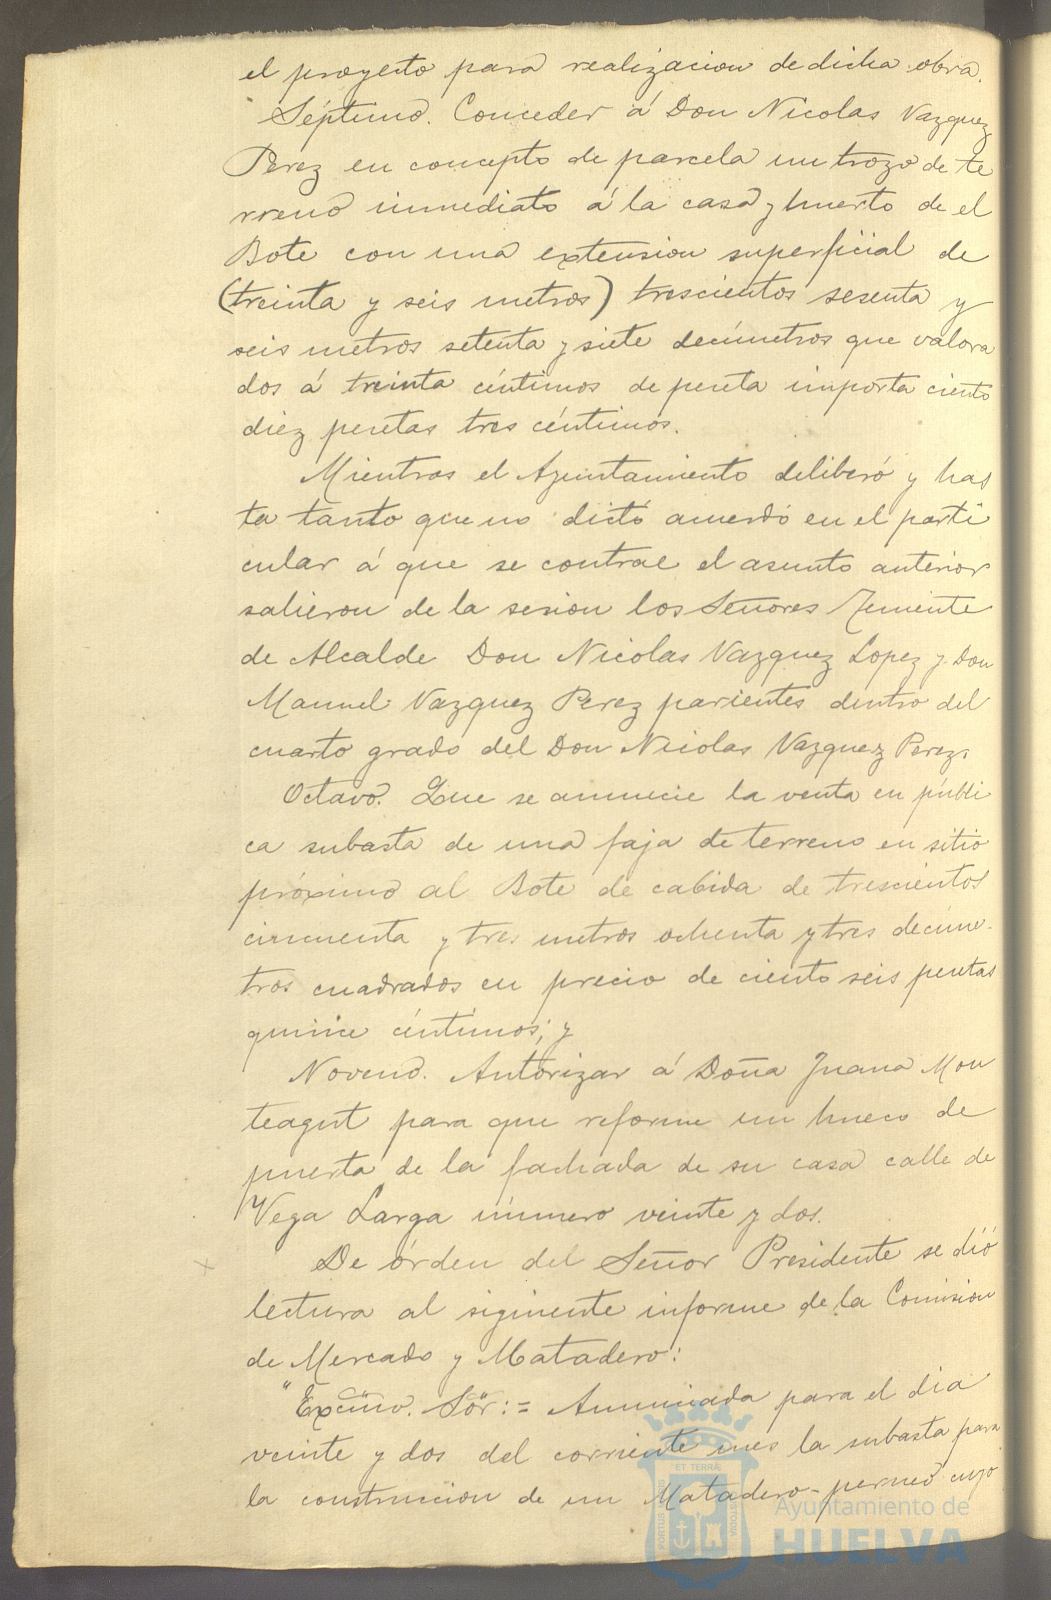 el proyecto para realizacion de dicha obra.
Séptimo. Conceder á Don Nicolas Vazquez
Perez en concepto de parcela un trozo de te
rreno inmediato á la casa y huerto de el
Bote con una extension superficial de
(treinta y seis metros) trescientos sesenta y
seis metros setenta y siete decímetros que valora
dos á treinta céntimos de peseta importa ciento
diez pesetas tres céntimos.
Mientras el Ayuntamiento deliberó y has
ta tanto que no dictó acuerdo en el parti
cular á que se contrae el asunto anterior
salieron de la sesion los Señores Teniente
de Alcalde Don Nicolas Vazquez Lopez y Don
Manuel Vazquez Perez parientes dentro del
cuarto grado del Don Nicolas Vazquez Perez.
Octavo. Que se anuncie la venta en públi
ca subasta de una faja de terreno en sitio
próximo al Bote de cabida de trescientos
cincuenta y tres metros ochenta y tres decíme-
tros cuadrados en precio de ciento seis pesetas
quince céntimos; y
Noveno. Autorizar á Doña Juana Mon
teagut para que reforme un hueco de
puerta de la fachada de su casa calle de
Vega Larga número veinte y dos.
De órden del Señor Presidente se dió
lectura al siguiente informe de la Comision
de Mercado y Matadero:
"Excmo. Sör: = Anunciada para el dia
veinte y dos del corriente mes la subasta para
la construccion de un Matadero-perneo cuyo
PORTUS MARIS ET TERRÆ CUSTODIA
Ayuntamiento de
HUELVA